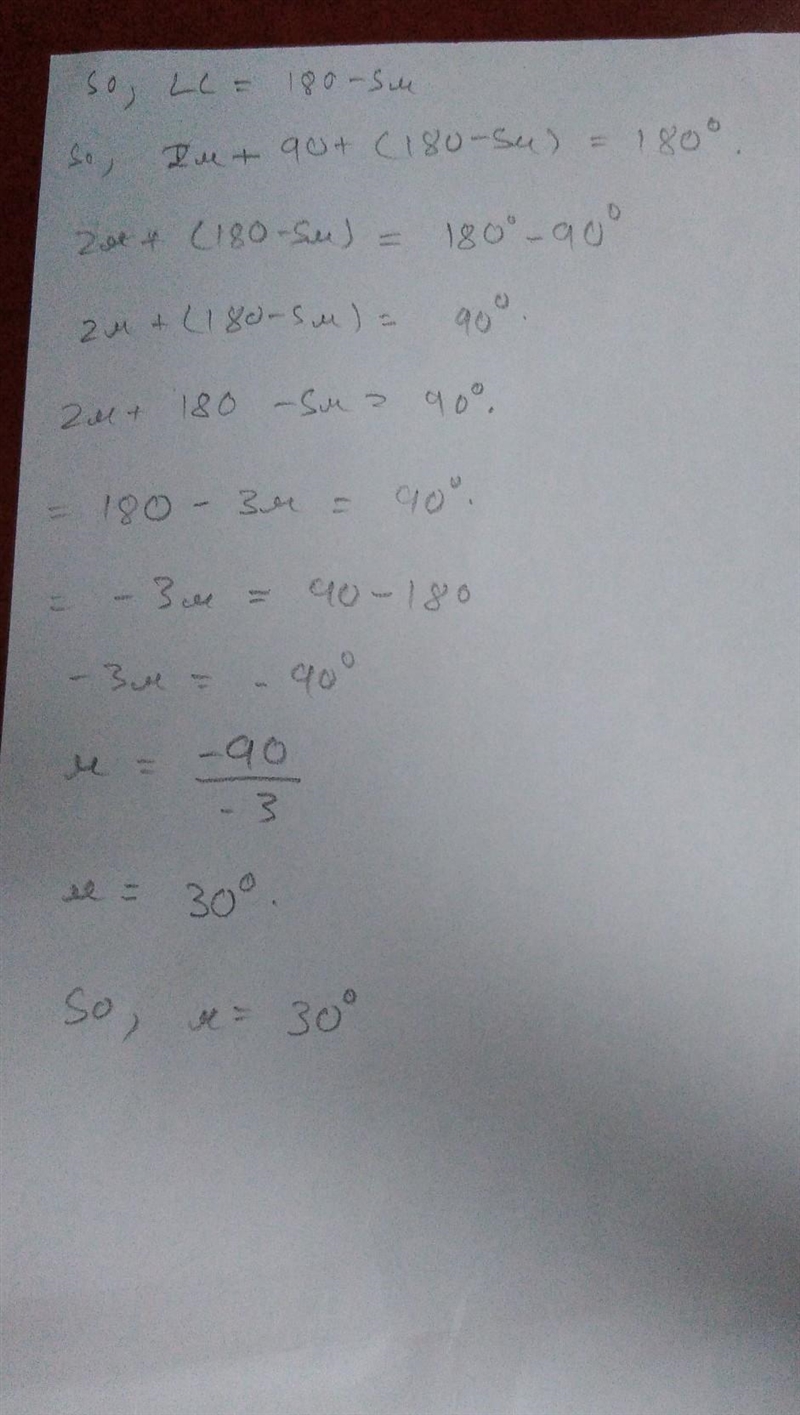 So, ∠C = 180-5x
So, 2x + 90 + (180-5x) = 180°.
2x + (180-5x) = 180° - 90°
2x + (180-5x) = 90°.
2x + 180 - 5x = 90°.
= 180 - 3x = 90°.
= - 3x = 90 - 180
- 3x = - 90°
x = -90
- 3
x = 30°.
So, x = 30°